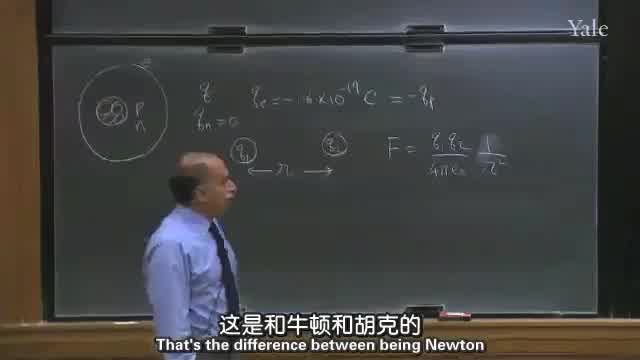 Yale
q qe = -1.6×10⁻¹⁹ C = -qp
p
n
qn = 0
q1 q2
← r →
F = q1 q2 / 4πε0 1 / r²
这是和牛顿和胡克的
That's the difference between being Newton